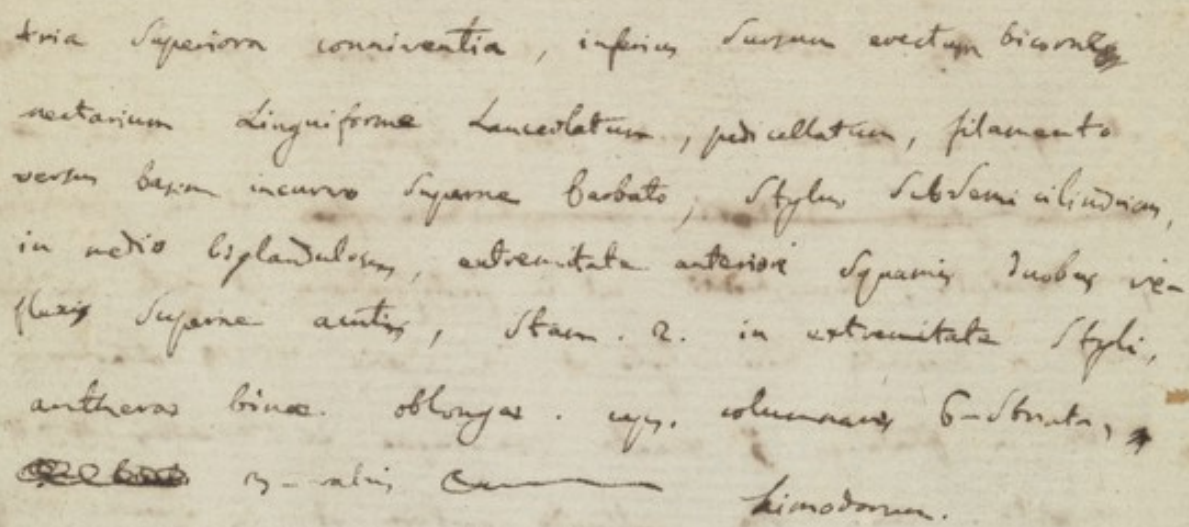 tria Superiora conniventia, inferius Sursum erectum bicorne
nectarium Linguiforme Lanceolatum, pedicellatum, filamento
versus basim incurvo Superne barbato, Stylus Subsemicilindricus,
in medio biglandulosus, extremitate anteriori Squamis duobus re-
flexis Superne acutis, Stam. 2. in extremitate Styli,
antheras binae. oblongae. cap. columnaris 6-Striata,
3-valvis
Limodorum.